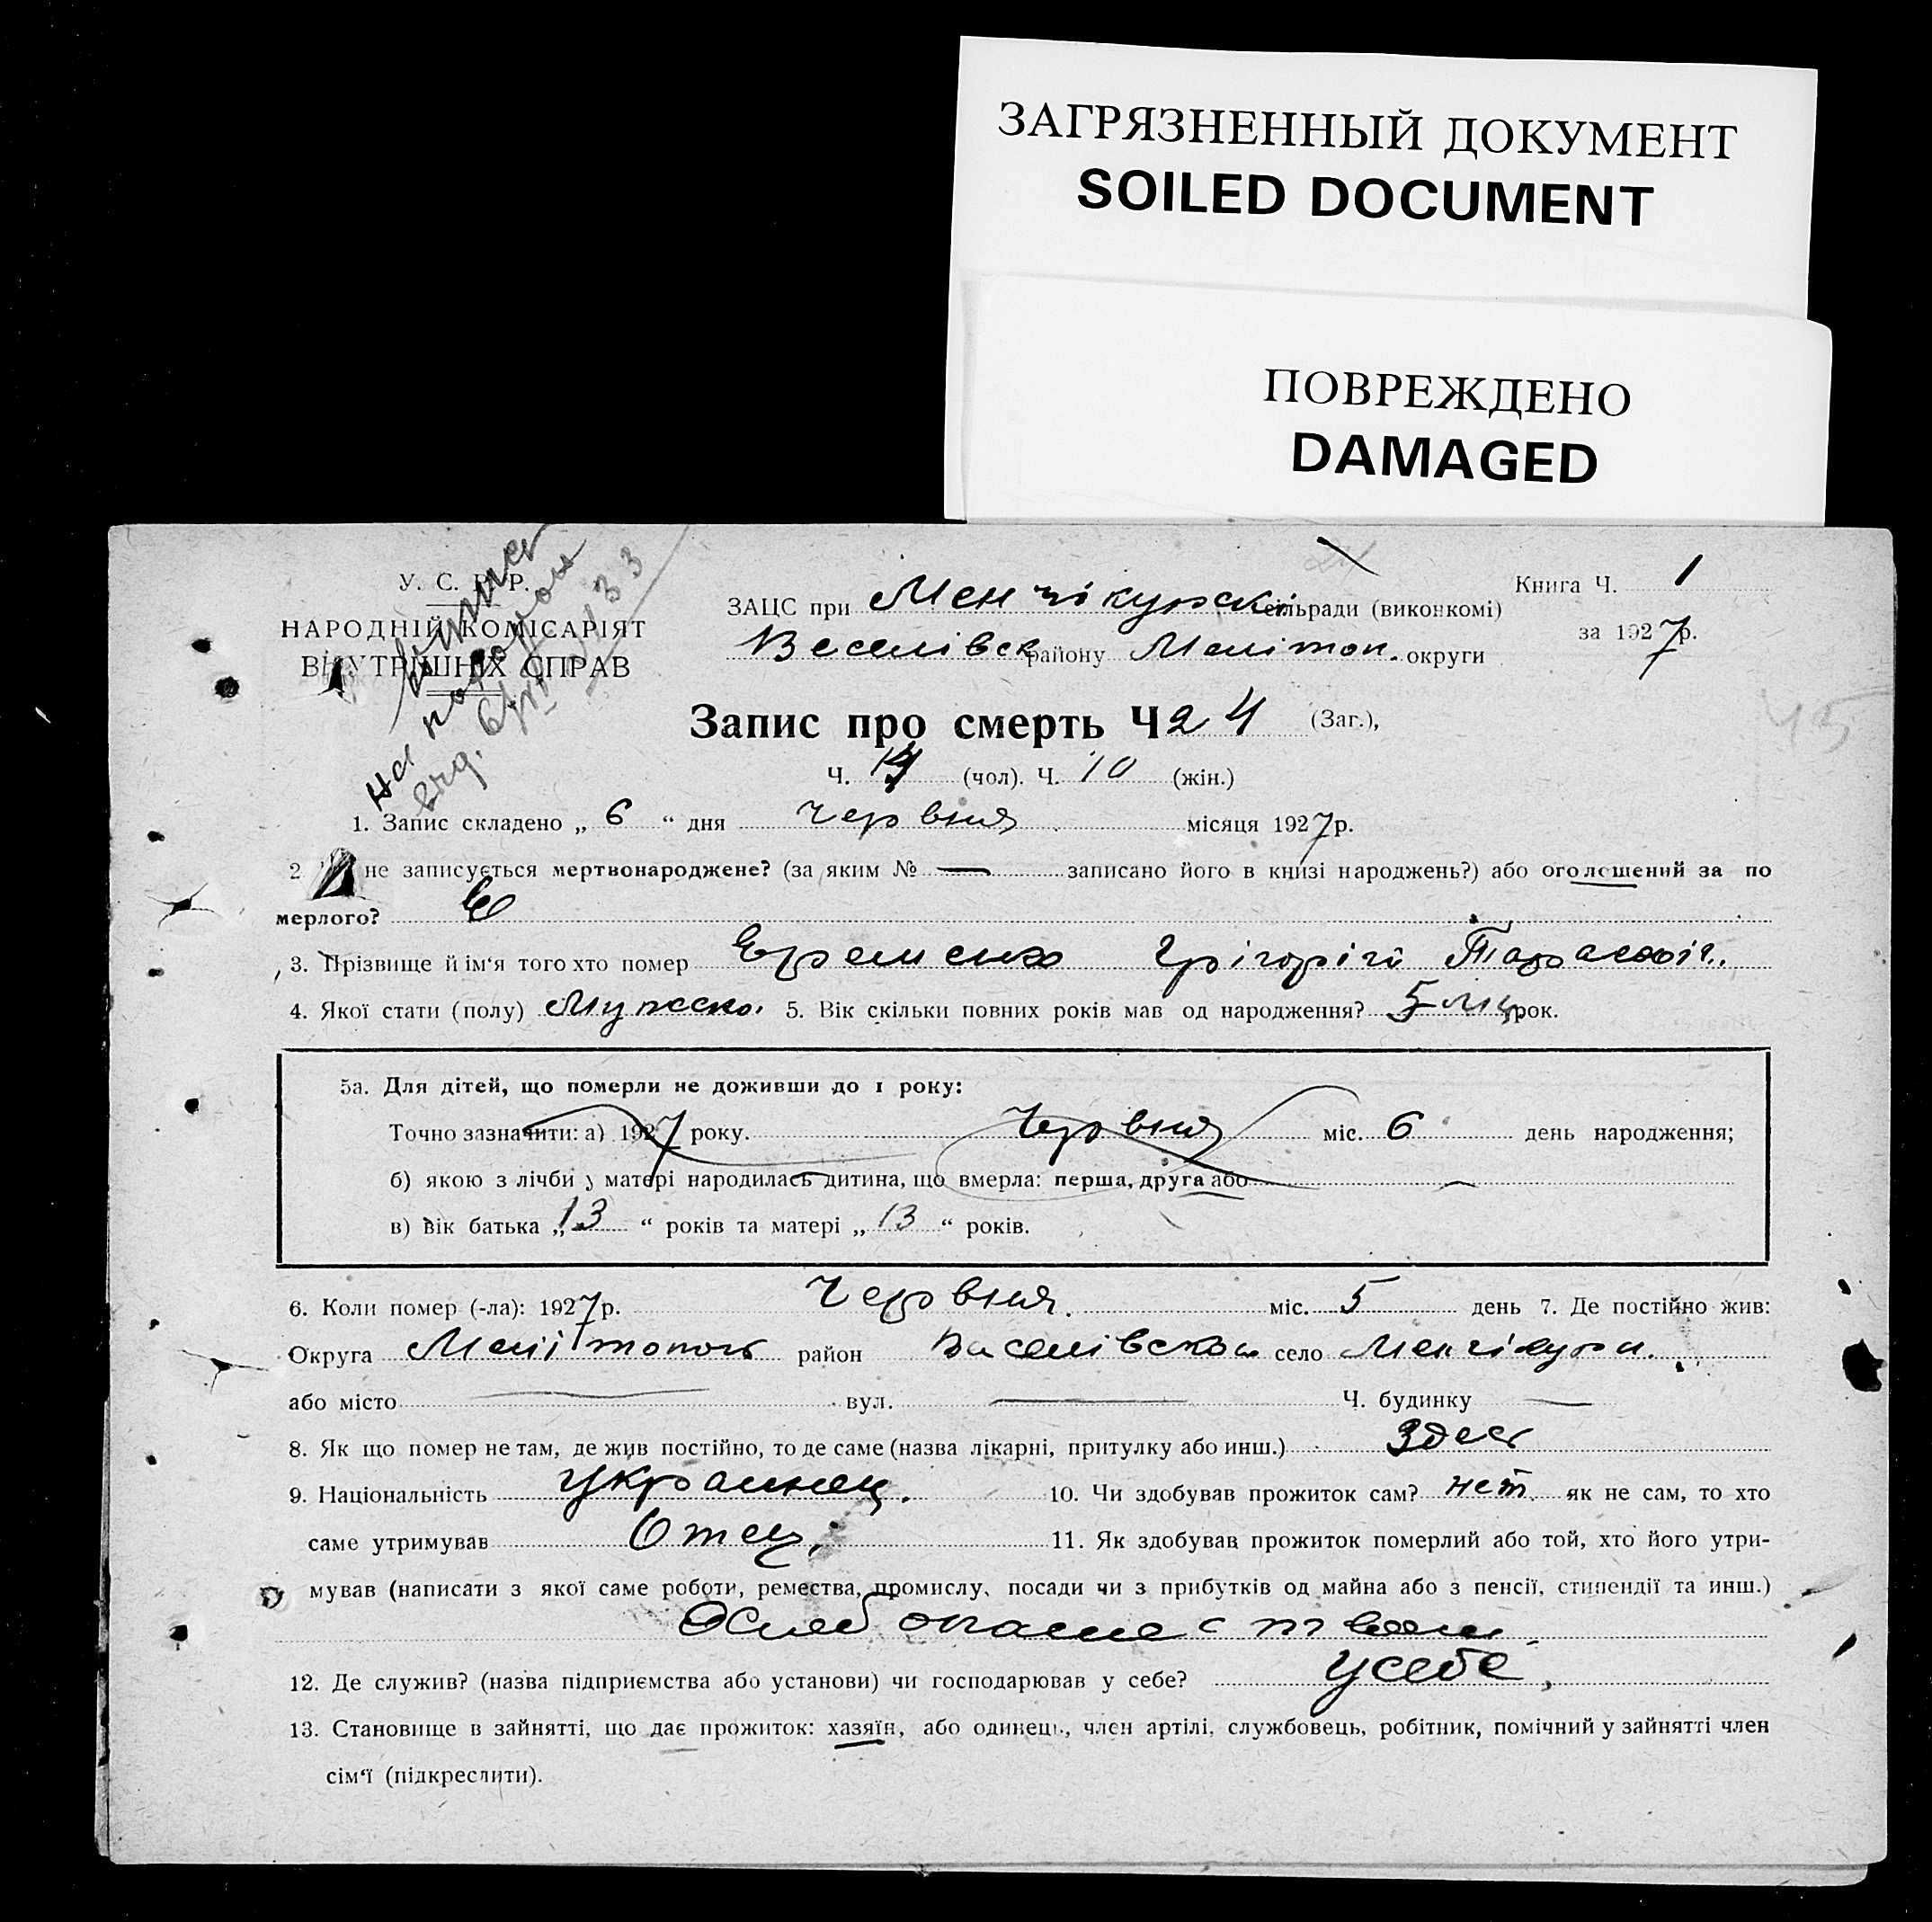 ЗАГРЯЗНЕННЫЙ ДОКУМЕНТ
SOILED DOCUMENT
ПОВРЕЖДЕНО
DAMAGED
У. С. Р. Р.
НАРОДНІЙ КОМІСАРІЯТ
ВНУТРІШНІХ СПРАВ
ЗАЦС при Менчікурскі сільради (виконкомі)
Книга Ч. 1
Веселівск району Мелітоп. округи
за 1927 р.
45
Запис про смерть Ч 24 (Заг.),
Ч. 14 (чол). Ч. 10 (жін.)
1. Запис складено „ 6 “ дня Червня місяця 1927 р.
2 не записується мертвонароджене? (за яким № — записано його в книзі народжень?) або оголошений за по
мерлого?
3. Прізвище й ім‘я того хто помер Еременко Грігорій Тарасовіч.
4. Якої стати (полу) Мужеско. 5. Вік скільки повних років мав од народження? 5 миц рок.
5а. Для дітей, що померли не доживши до 1 року:
Точно зазначити: а) 1927 року. Червня міс. 6 день народження;
б) якою з лічби у матері народилась дитина, що вмерла: перша, друга або
в) вік батька „ 13 “ років та матері „ 13 “ років.
6. Коли помер (-ла): 1927 р. Червня. міс. 5 день 7. Де постійно жив:
Округа Мелітополь район Веселівском село Менчікури.
або місто — вул. — Ч. будинку —
8. Як що помер не там, де жив постійно, то де саме (назва лікарні, притулку або инш.) Здесь
9. Національність Украинец. 10. Чи здобував прожиток сам? нет. як не сам, то хто
саме утримував Отец, 11. Як здобував прожиток померлий або той, хто його утри-
мував (написати з якої саме роботи, ремества, промислу, посади чи з прибутків од майна або з пенсії, стипендії та инш.)
Хлебопашеством
12. Де служив? (назва підприємства або установи) чи господарював у себе? У себе,
13. Становище в зайнятті, що дає прожиток: хазяїн, або одинець, член артілі, службовець, робітник, помічний у зайнятті член
сім‘ї (підкреслити).